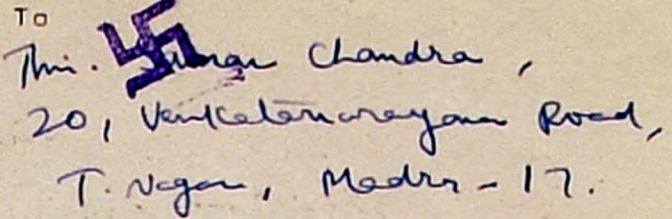 To
Thiru. Kumar Chandra,
20, Venkatanarayana Road,
T. Nagar, Madras - 17.